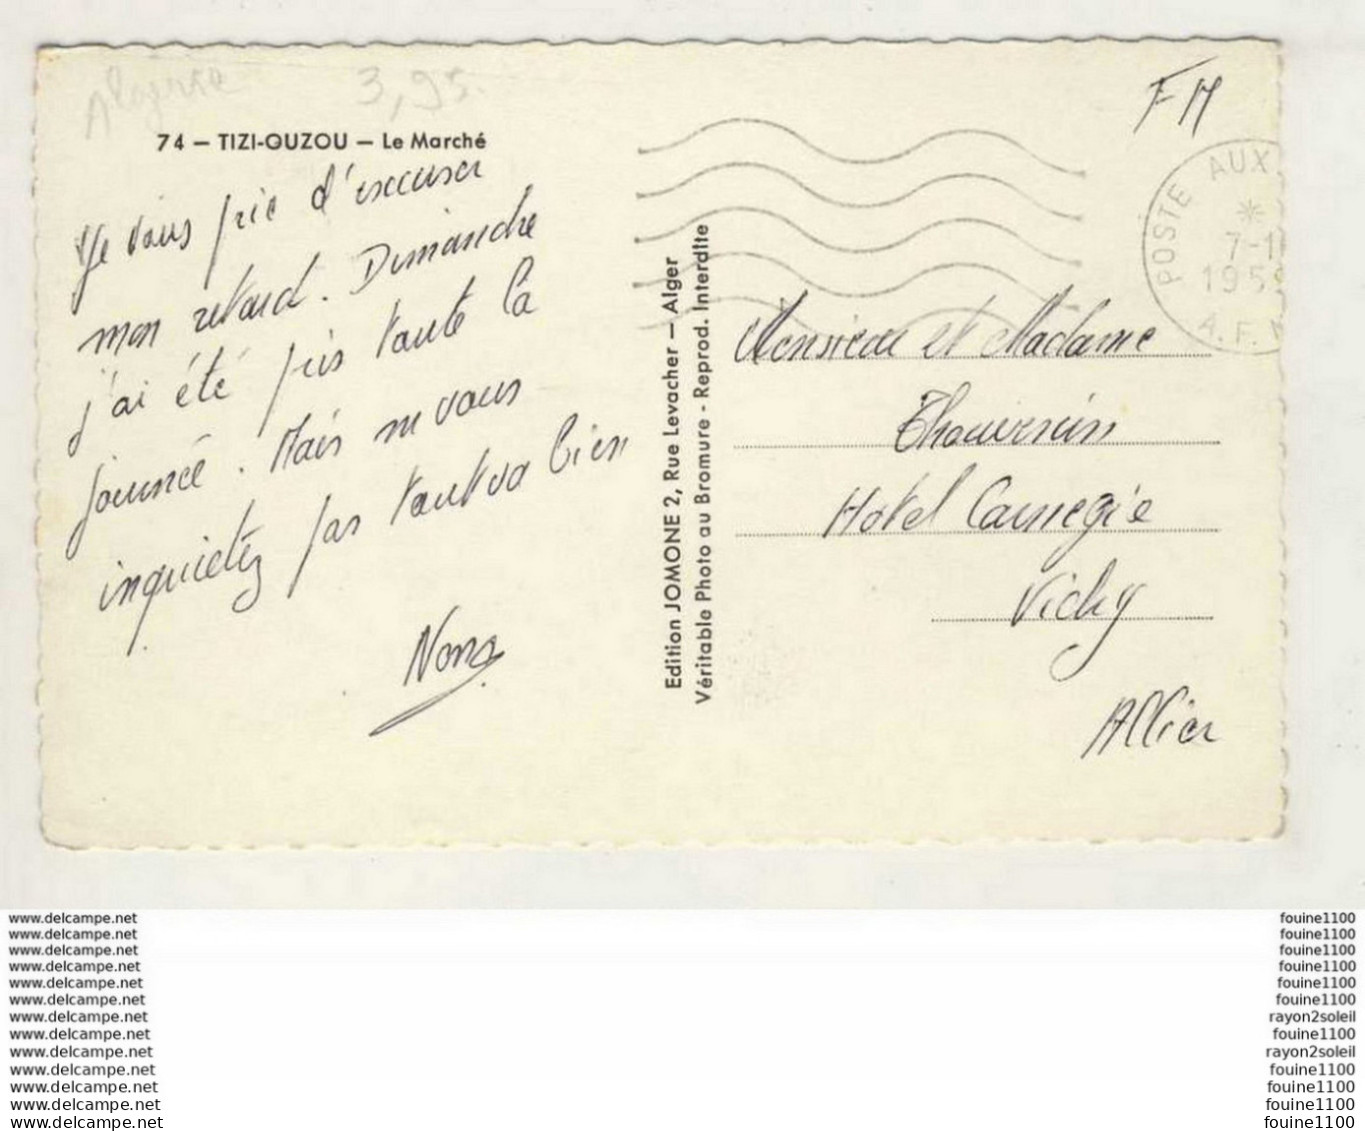 Algérie 3,95
F M
74 – TIZI-OUZOU – Le Marché
Je vous prie d'excuser
mon retard. Dimanche
j'ai été pris toute la
journée. Mais ne vous
inquietez pas tout va bien
Nono
Edition JOMONE 2, Rue Levacher – Alger
Véritable Photo au Bromure - Reprod. Interdite
POSTE AUX
7-1
1959
A.F.
Monsieur et Madame
Thouvenin
Hotel Carnegie
Vichy
Allier
www.delcampe.net
www.delcampe.net
www.delcampe.net
www.delcampe.net
www.delcampe.net
www.delcampe.net
www.delcampe.net
www.delcampe.net
www.delcampe.net
www.delcampe.net
www.delcampe.net
www.delcampe.net
www.delcampe.net
fouine1100
fouine1100
fouine1100
fouine1100
fouine1100
fouine1100
rayon2soleil
fouine1100
rayon2soleil
fouine1100
fouine1100
fouine1100
fouine1100